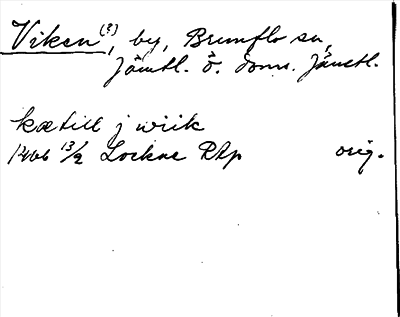 Viken(?), by, Brunflo sn,
Jämtl. ö. doms. Jämtl.
kætill j wiik
1466 13/2 Lockne RAp orig.